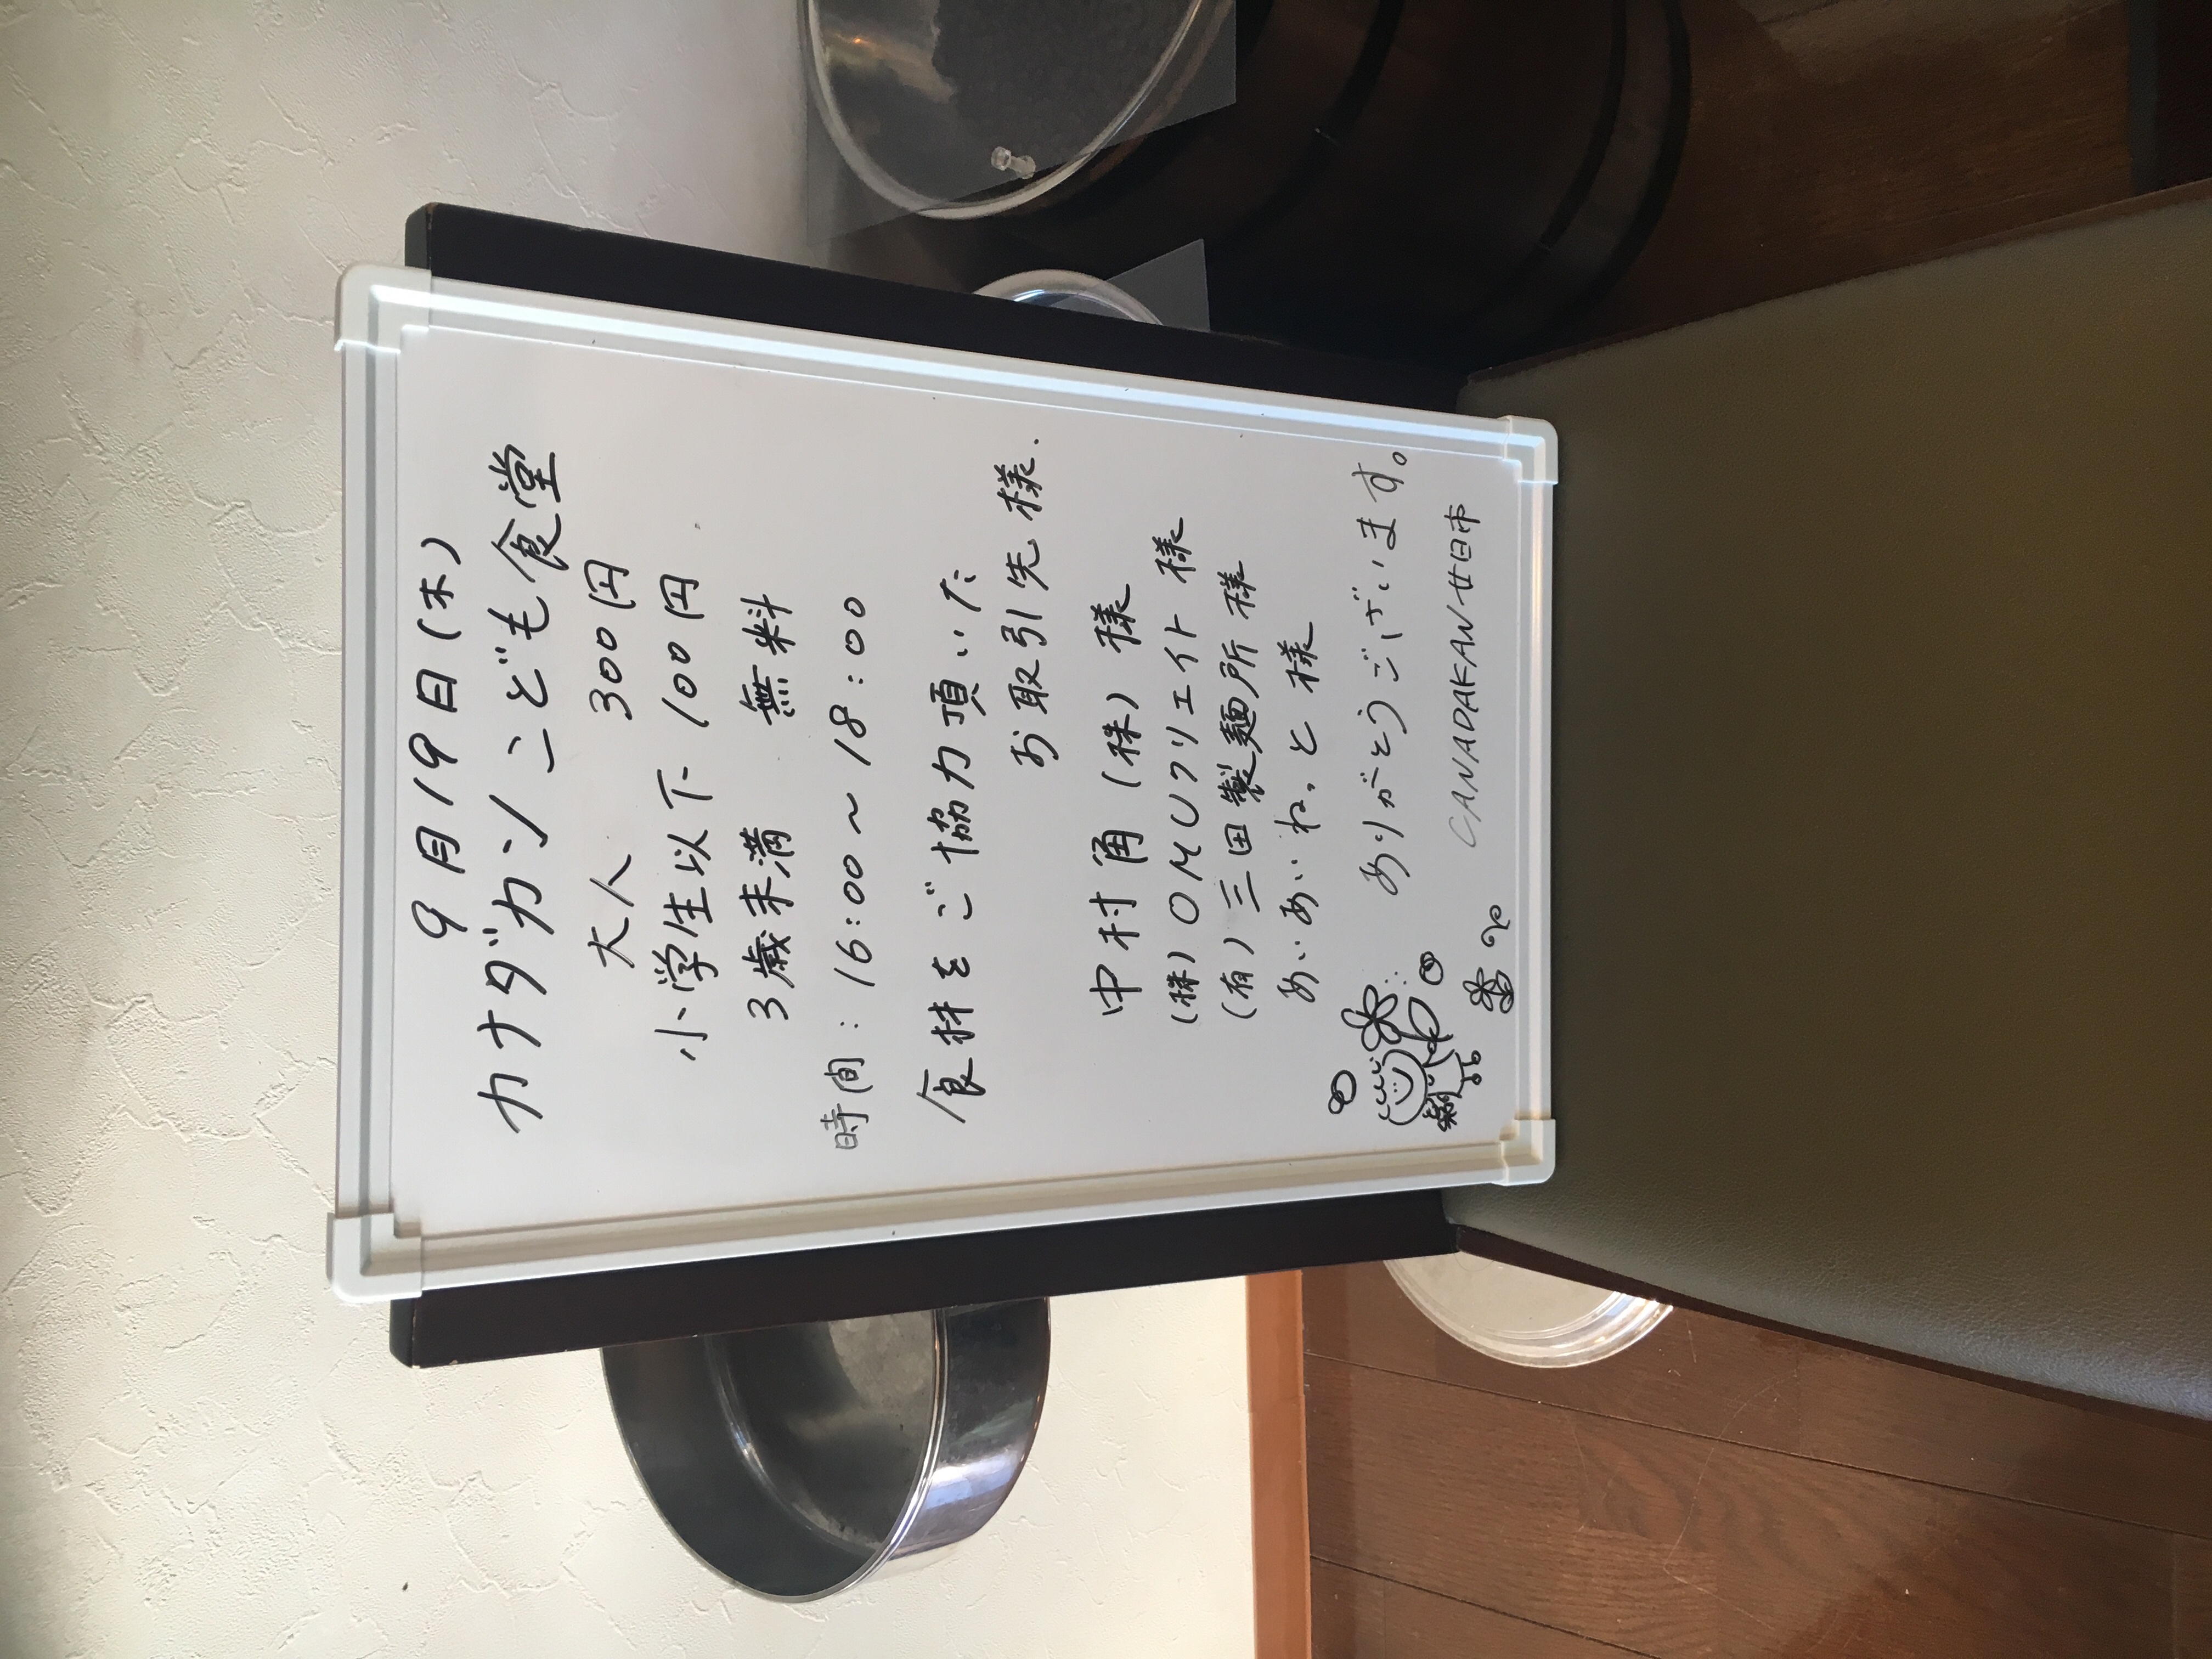 9月19日(木)
カナダカンこども食堂
大人 300円
小学生以下 100円
3歳未満 無料
時間:16:00〜18:00
食材をご協力頂いた
お取引先様.
中村角(株)様
(株)OMCクリエイト様
(有)三田製麺所様
あいあいねっと様
ありがとうございます。
CANADAKAN廿日市